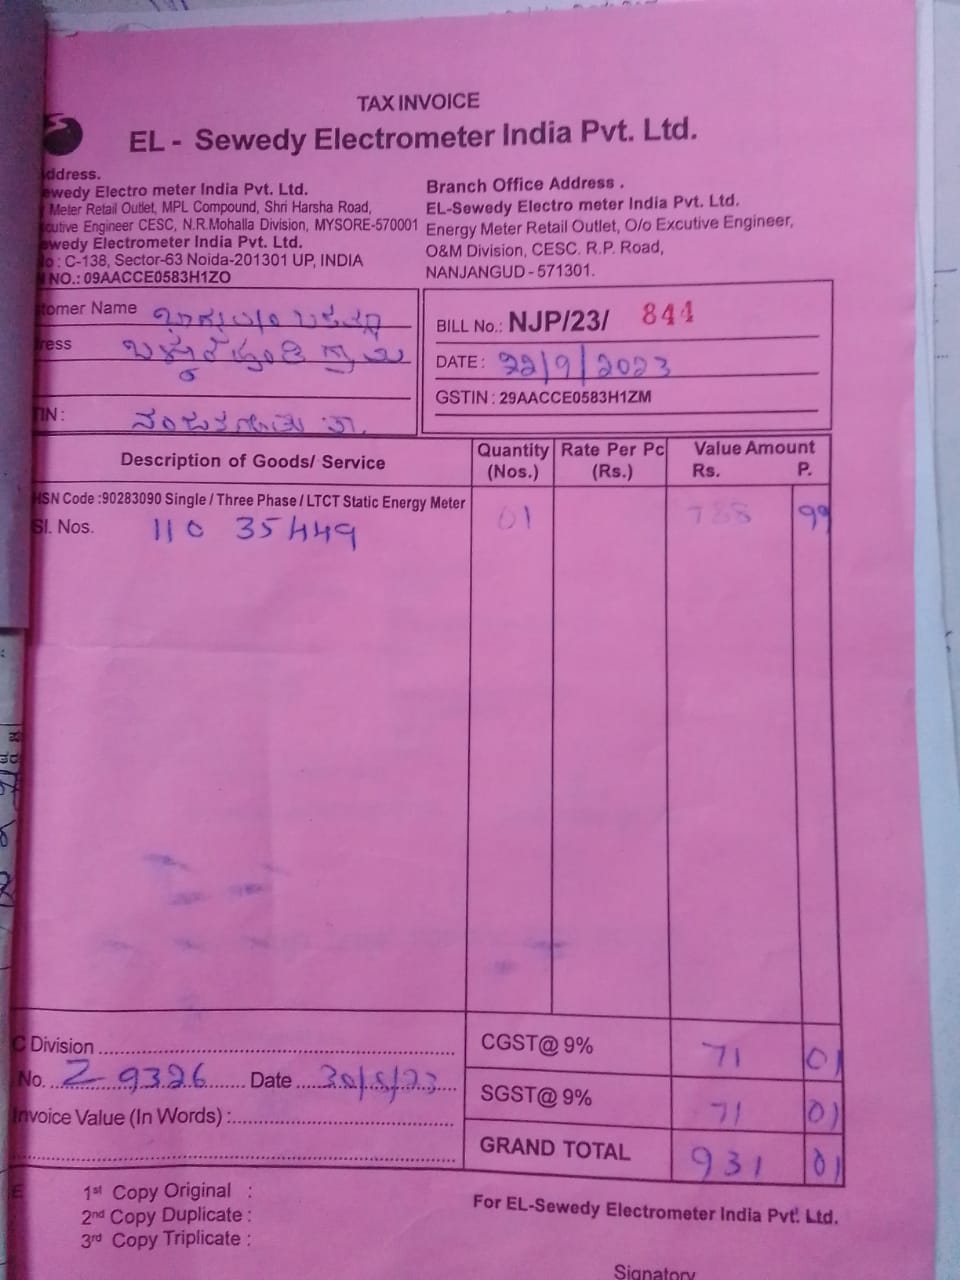 TAX INVOICE
EL - Sewedy Electrometer India Pvt. Ltd.
ddress.
ewedy Electro meter India Pvt. Ltd.
Meter Retail Outlet, MPL Compound, Shri Harsha Road,
cutive Engineer CESC, N.R.Mohalla Division, MYSORE-570001
wedy Electrometer India Pvt. Ltd.
o : C-138, Sector-63 Noida-201301 UP, INDIA
NO.: 09AACCE0583H1ZO
Branch Office Address .
EL-Sewedy Electro meter India Pvt. Ltd.
Energy Meter Retail Outlet, O/o Excutive Engineer,
O&M Division, CESC. R.P. Road,
NANJANGUD - 571301.
tomer Name
ress
TIN :
BILL No.: NJP/23/ 844
DATE : 22/9/2023
GSTIN : 29AACCE0583H1ZM
Description of Goods/ Service Quantity (Nos.) Rate Per Pc (Rs.) Value Amount Rs. P.
HSN Code :90283090 Single / Three Phase / LTCT Static Energy Meter 01 788 99
Sl. Nos. 110 35449
C Division
CGST@ 9% 71 01
No. 2 9326 Date 30/8/23
SGST@ 9% 71 01
Invoice Value (In Words) :
GRAND TOTAL 931 01
1st Copy Original :
2nd Copy Duplicate :
3rd Copy Triplicate :
For EL-Sewedy Electrometer India Pvt. Ltd.
Signatory